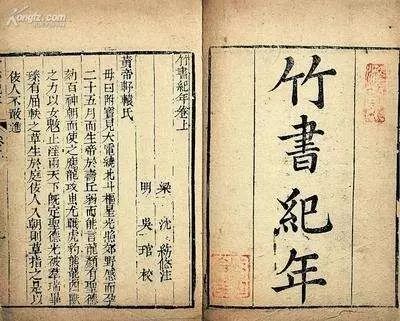 Kongfz.com
竹書紀年
竹書紀年卷上
梁 沈約修注
明 吳琯校
黃帝軒轅氏
母曰附寶見大電繞北斗樞星光照郊野感而孕
二十五月而生帝於壽丘弱而能言龍顏有聖德
劾百神朝而使之應龍攻蚩尤戰虎豹熊羆四獸
之力以女魃止淫雨天下既定聖德光被羣瑞畢
臻有屈軼之草生於庭佞人入朝則草指之是以
佞人不敢進